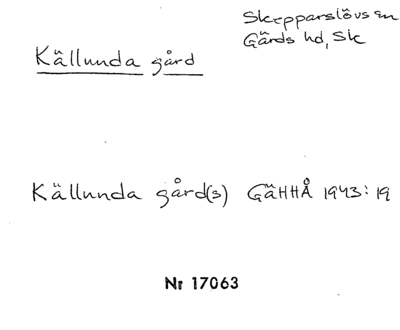 Skepparslövs sn
Gärds hd, Sk
Källunda gård
Källunda gård(s) GäHHÅ 1943:19
Nr 17063